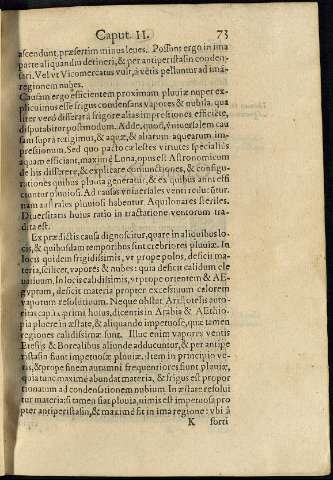 Caput. II. 73
ascendunt, præsertim minus leues. Possunt ergo in ima
parte aliquandiu detineri, & per antiperistasin conden-
sari. Vel vt Vicomercatus vult, à vẽtis pelluntur ad imã
regionem nubes.
Causam ergo efficientem proximam pluuiæ nuper ex-
plicuimus esse frigus condensans vapores & nubila. qua
liter verò differat à frigore alias impressiones efficiẽte,
disputabitur postmodum. Adde, quòd, vniuersalem cau
sam supra tetigimus, & aquæ, & aliarum aquearum im-
pressionum. Sed quo pacto cælestes virtutes specialius
aquam efficiant, maximè Luna, opus est Astronomicum
de his differere, & explicare coniunctiones, & configu-
rationes quibus pluuia generatur, & ex quibus anni effi
ciuntur pluuiosi. Ad causas vniuersales venti reducũtur.
nam australes pluuiosi habentur. Aquilonares steriles.
Diuersitatis huius ratio in tractatione ventorum tra-
dita est.
Ex prædictis causa dignoscitur, quare in aliquibus lo-
cis, & quibusdam temporibus sint crebriores pluuiæ. In
locis quidem frigidissimis, vt prope polos, deficit ma-
teria, scilicet, vapores & nubes: quia deficit calidum ele
uatiuum. In locis calidissimis, vt prope orientem & AE-
gyptum, deficit materia propter excessiuum calorem
vaporum resolutiuum. Neque obstat Aristotelis auto
ritas cap. 12. primi huius, dicentis in Arabia & AEthio-
pia pluere in æstate, & aliquando impetuosè, quæ tamen
regiones calidissimæ sunt. Illuc enim vapores ventis
Etesijs & Borealibus aliunde adducuntur, & per antipe
ristasin fiunt impetuosæ plouiæ. Item in principio ve-
ris, & prope finem autumni frequentiores fiunt pluuiæ,
quia tunc maximè abundat materia, & frigus est propor
tionatum ad condensationem nubium. In æstare resolui
tur materia: si tamen fiat plouia, nimis est impetuosa pro
pter antiperistasin, & maximè fit in ima regione: vbi à
K forti